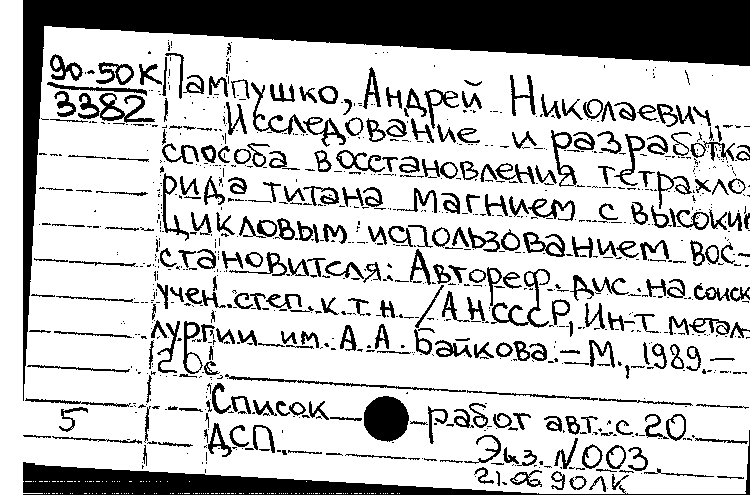 90-50К
3382
Пампушко, Андрей Николаевич.
Исследование и разработка
способа восстановления тетрахло-
рида титана магнием с высоким
цикловым использованием вос-
становителя: Автореф. дис. на соиск.
учен. степ. к.т.н. /АН СССР, Ин-т метал-
лургии им. А.А. Байкова. – М., 1989. –
26с.
Список работ авт.: с 20.
5
ДСП.
Экз. N003.
21.06.90ЛК